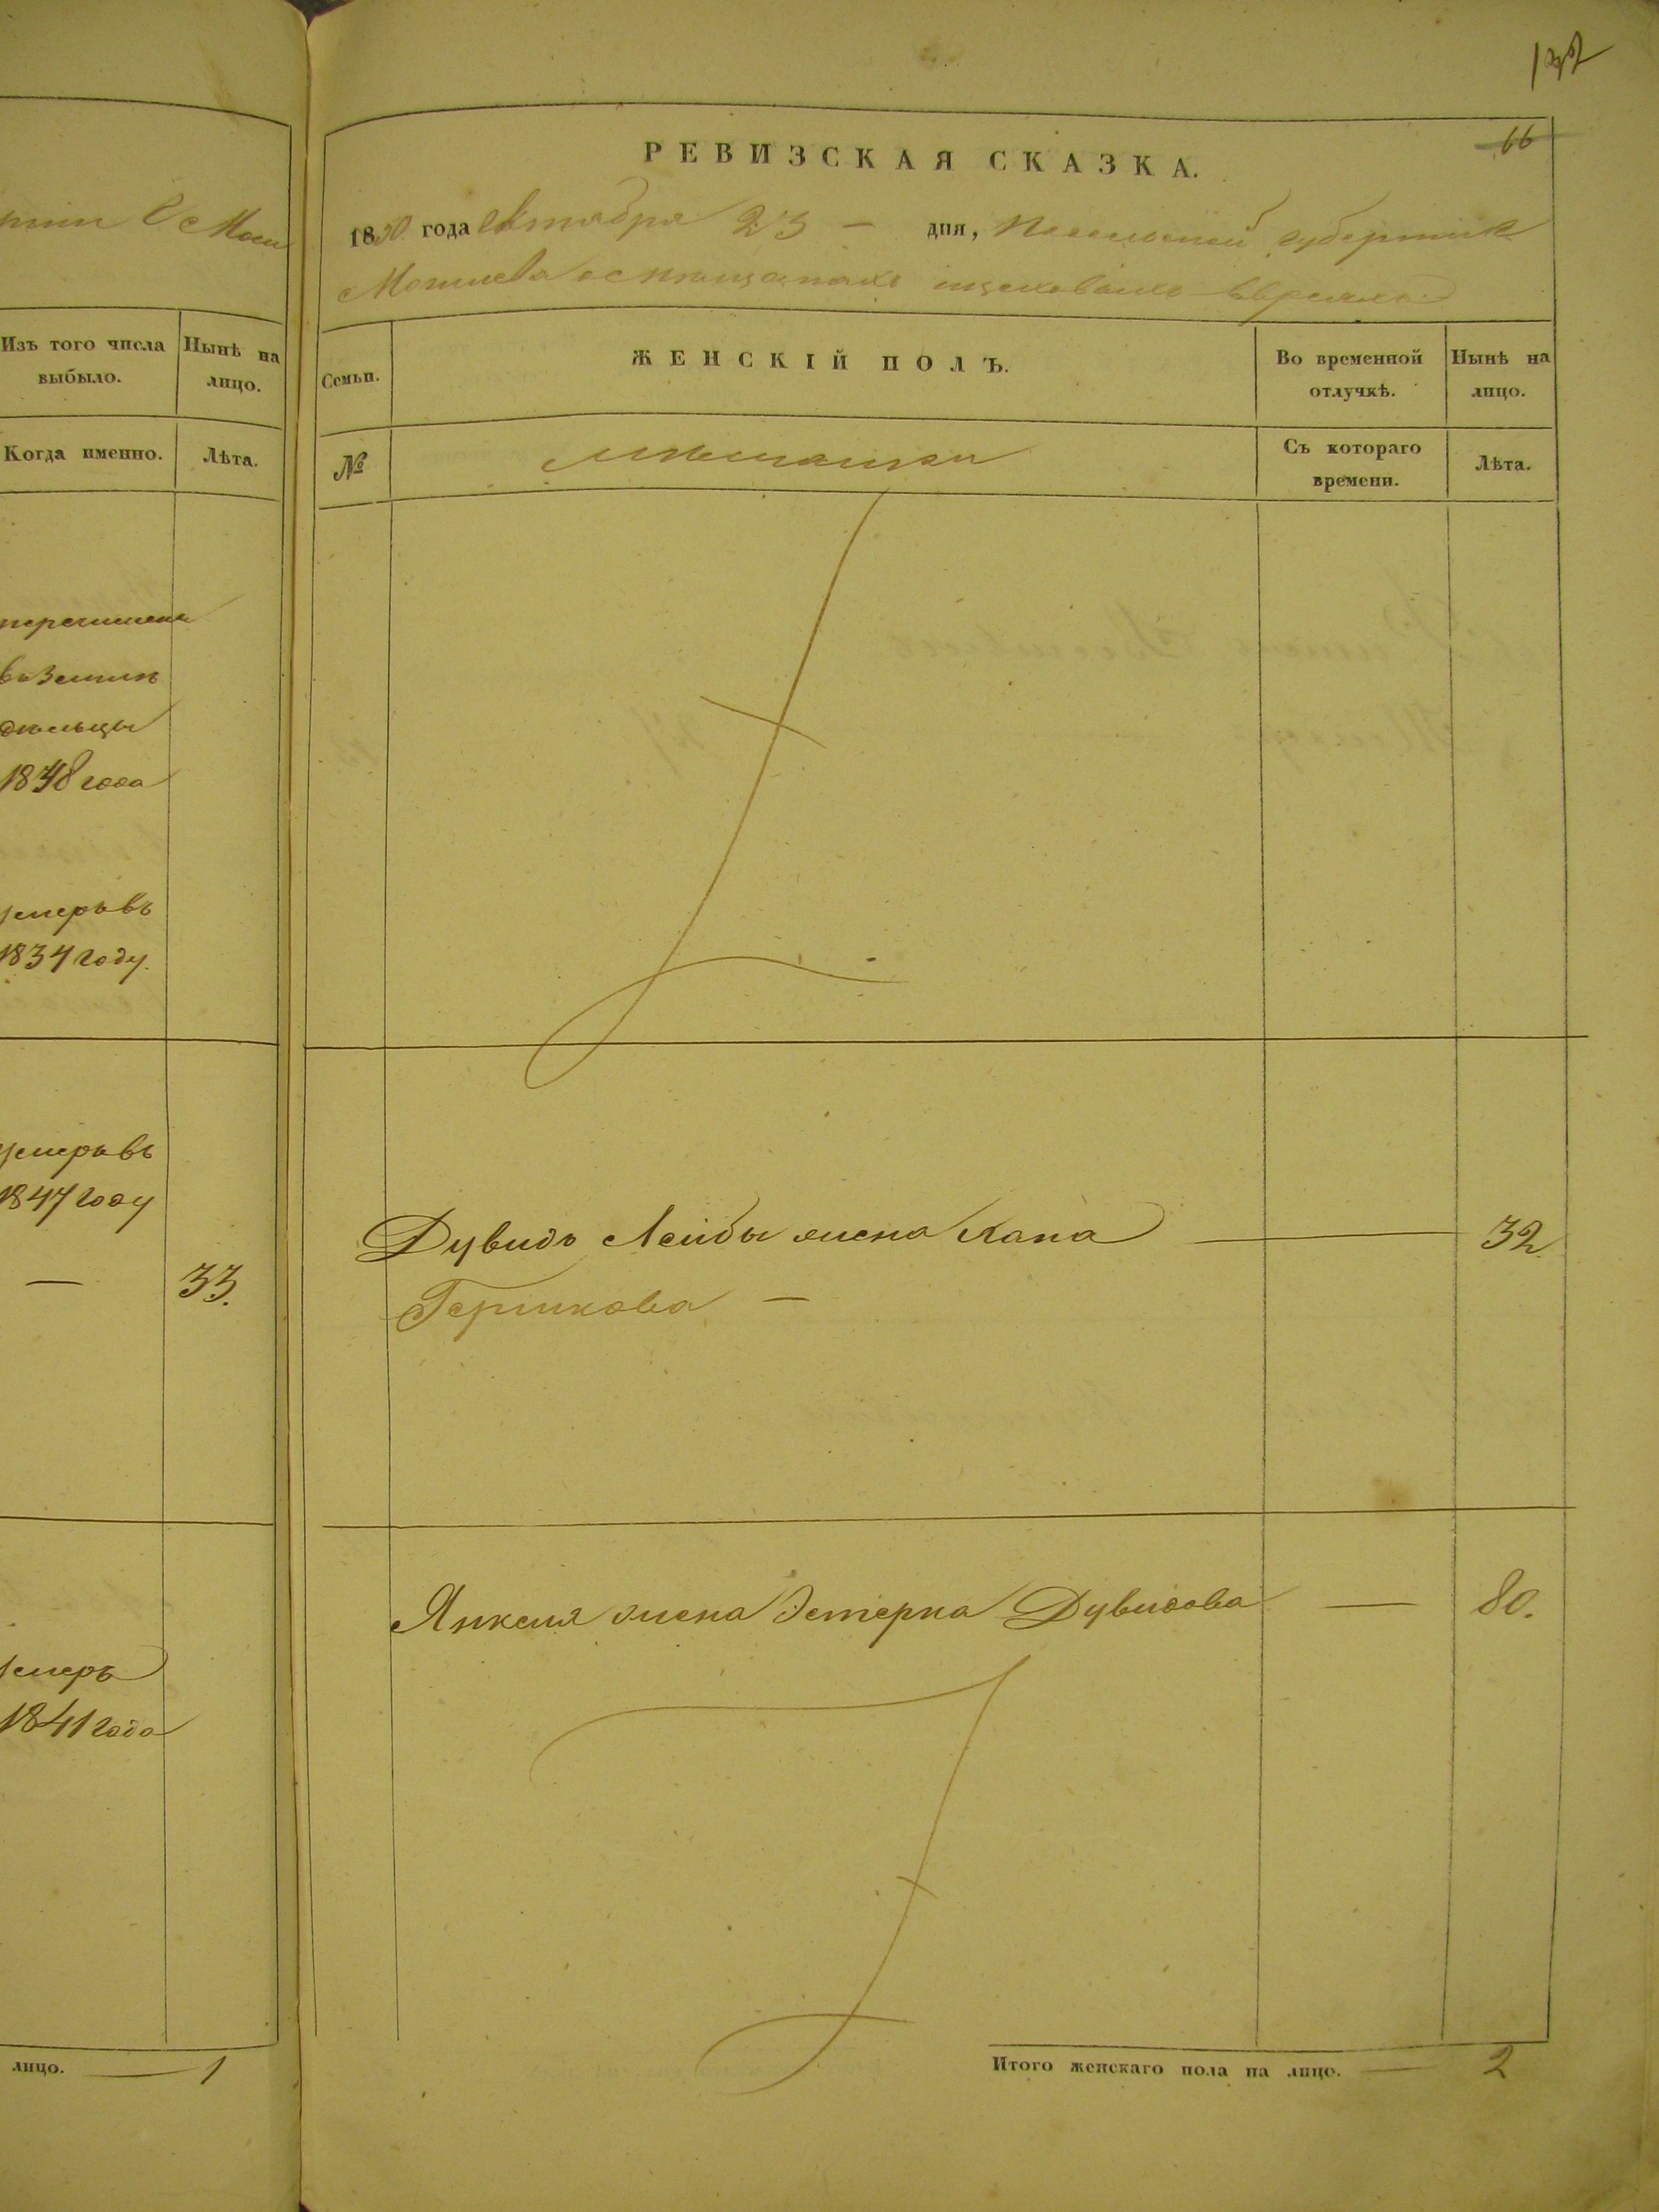 66
РЕВИЗСКАЯ СКАЗКА.
1850 года Октября 23 — дня, Подольской губернии
Могилева о мещанахъ евреяхъ
Изъ того числа выбыло.
Нынѣ на лицо.
Когда именно.
Лѣта.
перечислены
въ Земле
дельцы
1848 года
умеръ въ
1834 году.
умеръ въ
1847 году
— 33.
умеръ
1841 года
лицо. — 1
Семьи.
ЖЕНСКІЙ ПОЛЪ.
Во временной отлучкѣ.
Нынѣ на лицо.
№
мѣщанки
Съ котораго времени.
Лѣта.
Дувидъ Лейбы жена Хана — 32
Гершкова —
Янкеля жена Эстерка Дувидова — 80.
Итого женскаго пола на лицо. — 2